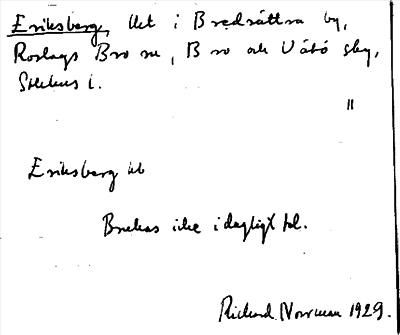 Eriksberg, lht i Bredsättra by,
Roslags Bro sn, Bro och Vätö skg,
Sthlms l.
"
Eriksberg lht
Brukas icke i dagligt tal.
Rickard Norrman 1929.